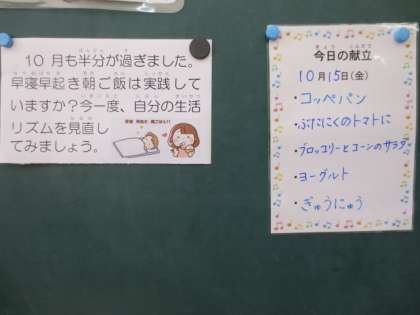 10月も半分が過ぎました。
早寝早起き朝ご飯は実践して
いますか？今一度、自分の生活
リズムを見直し
てみましょう。
今日の献立
10月15日(金)
・コッペパン
・ぶたにくのトマトに
・ブロッコリーとコーンのサラダ
・ヨーグルト
・ぎゅうにゅう